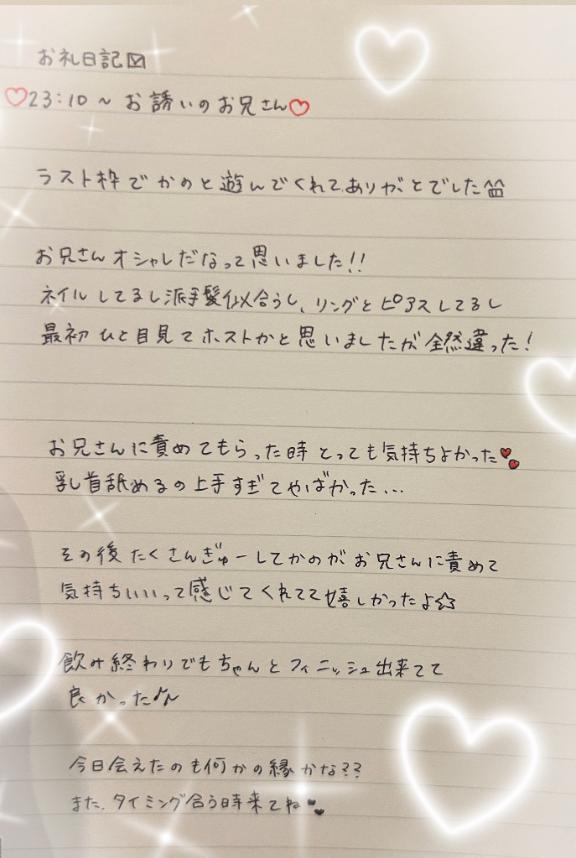 お礼日記☑
♡23:10〜お誘いのお兄さん♡
ラスト枠でかのと遊んでくれてありがとでした
お兄さんオシャレだなって思いました!!
ネイルしてるし派手髪似合うし、リングとピアスしてるし
最初ひと目見てホストかと思いましたが全然違った!
お兄さんに責めてもらった時とっても気持ちよかった♥♥
乳首舐めるの上手すぎてやばかった...
その後たくさんぎゅーしてかのがお兄さんに責めて
気持ちいいって感じてくれてて嬉しかったよ☆
飲み終わりでもちゃんとフィニッシュ出来てて
良かった♪
今日会えたのも何かの縁かな??
また、タイミング合う時来てね♥♥